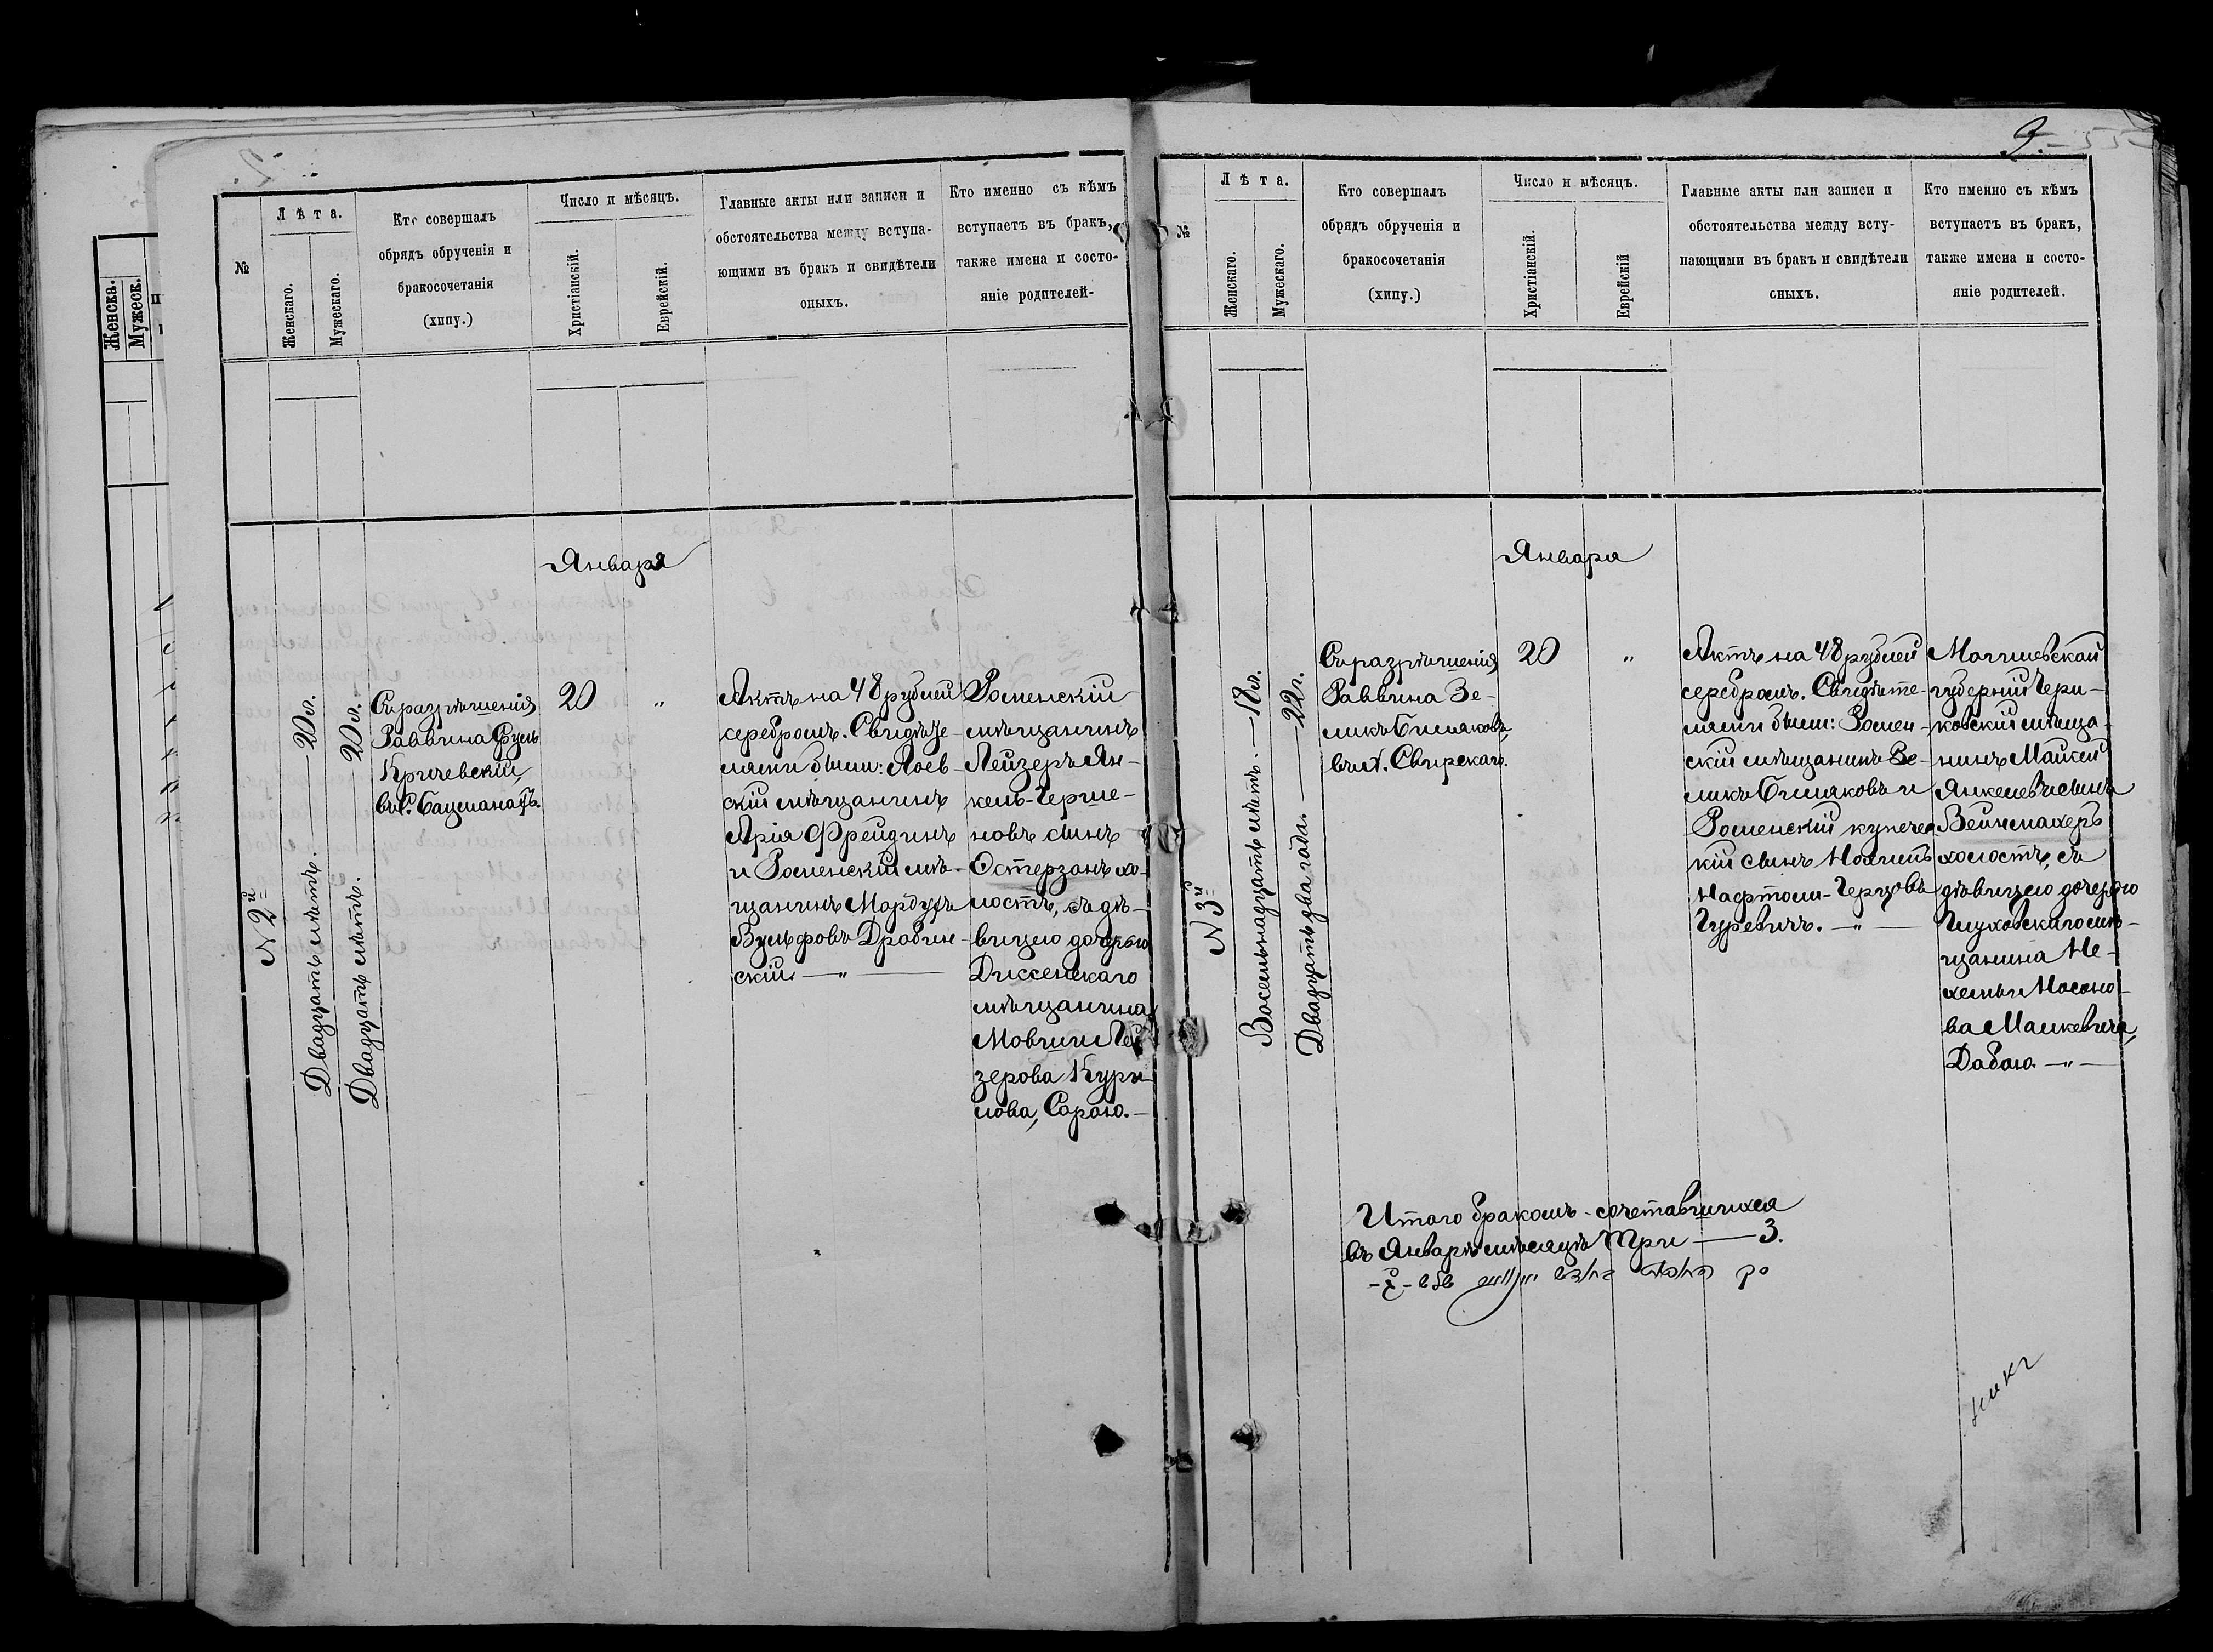 Женска.
Мужеск.
№
Лѣта.
Женскаго.
Мужескаго.
Кто совершалъ
обрядъ обрученія и
бракосочетанія
(хипу.)
Число и мѣсяцъ.
Христіанскій.
Еврейскій.
Главные акты или записи и
обстоятельства между вступа-
ющими въ бракъ и свидѣтели
оныхъ.
Кто именно съ кѣмъ
вступаетъ въ бракъ,
также имена и состо-
яніе родителей-
Января
N 2й
Двадцать лѣтъ. — 20 л.
Двадцать лѣтъ. — 20 л.
Съ разрѣшенія
Раввина
Кричевскій,
20
"
Актъ на 48 рублей
серебромъ. Свидѣте-
лями были: Лоев-
скій мѣщанинъ
Арія Фрейдинъ
и Роменскій мѣ-
щанинъ Мордухъ
Вульфовъ Драбин-
скій. — " —
Роменскій
мѣщанинъ
Лейзеръ Ян-
кель-Герше-
новъ сынъ
Остерзонъ хо-
лостъ, съ дѣ-
вицею дочерью
Дисненскаго
мѣщанина
Мовши Лей
зерова Кури-
лова, Сарою. —
9. - 55
№
Лѣта.
Женскаго.
Мужескаго.
Кто совершалъ
обрядъ обрученія и
бракосочетанія
(хипу.)
Число и мѣсяцъ.
Христіанскій.
Еврейскій
Главные акты или записи и
обстоятельства между всту-
пающими въ бракъ и свидѣтели
оныхъ.
Кто именно съ кѣмъ
вступаетъ въ бракъ,
также имена и состо-
яніе родителей.
Января
N 3й
Восемьнадцать лѣтъ. — 18 л.
Двадцать два года. — 22 г.
Съ разрѣшенія
Раввина Зе-
ликъ Симяковъ,
въ д. Свирскаго.
20
"
Актъ на 48 рублей
серебромъ. Свидѣте-
лями были: Ромен-
скій мѣщанинъ Зе-
ликъ Симяковъ и
Роменскій купечес
кій сынъ
Нафтоли-Герцовъ
Гуревичъ. — " —
Могилевской
губерніи Чери-
ковскій мѣща-
нинъ
Янкелевъ сынъ
Вейнмахеръ
холостъ, съ
дѣвицею дочерью
Глуховскаго мѣ-
щанина Не-
хемьи Носоно-
ва
Дабою. — " —
Итого бракомъ-сочетавшихся
въ Январѣ мѣсяцѣ три — 3.